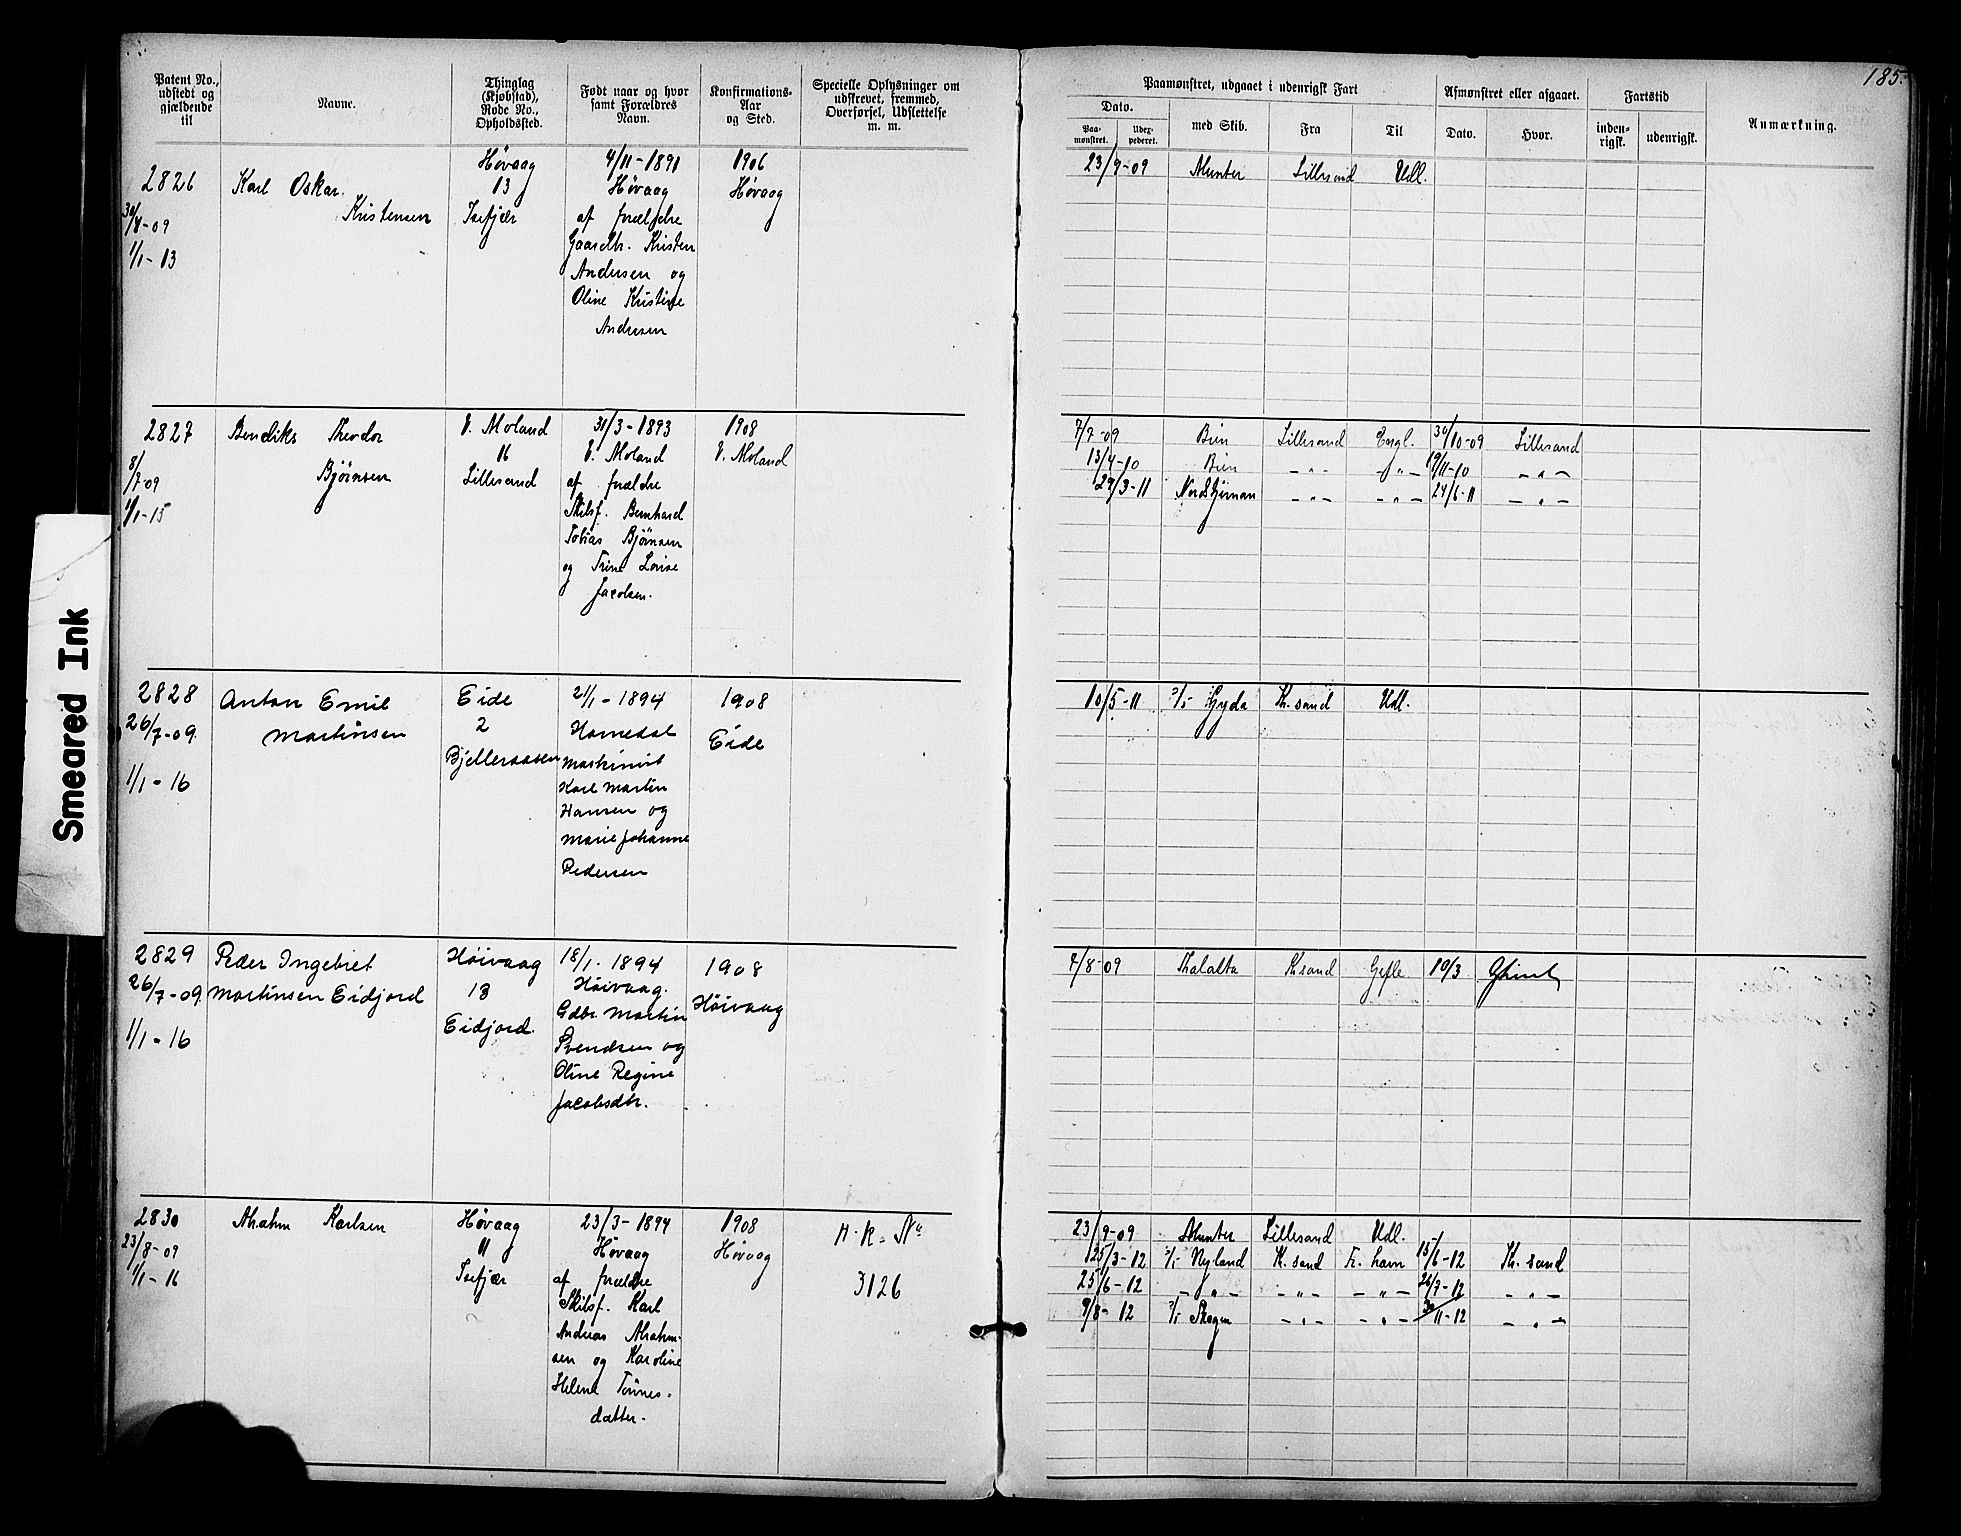 185.
Patent No.,
udstedt og
gjældende
til
Navne.
Thinglag
(Kjøbstad),
Rode No.,
Opholdssted.
Født naar og hvor
samt Forældres
Navn.
Konfirmations-
Aar
og Sted.
Specielle Oplysninger om
udskrevet, fremmed,
Overførsel, Udslettelse
m. m.
Paamønstret, udgaaet i udenrigsk Fart
Dato.
Paa-
mønstret.
Udex-
pederet.
med Skib.
Fra
Til
Afmønstret eller afgaaet.
Dato.
Hvor.
Fartstid
inden-
rigsk.
udenrigsk.
Anmærkning.
2826
30/8-09
1/1-13
Karl Oskar
Kristensen
Høvaag
13
Isefjær
4/11-1891
Høvaag
af forældre
Gaardbr. Kristen
Andersen og
Oline Kristine
Andersen
1906
Høvaag
23/9-09 Munter Lillesand Udl.
2827
8/7-09
1/1-15
Bendiks Theodor
Bjørnsen
V. Moland
16
Lillesand
31/3-1893
V. Moland
af forældre
Skibsf. Bernhard
Tobias Bjørnsen
og Trine Lovise
Jacobsen.
1908
V. Moland
7/7-09 Bien Lillesand Engl. 30/10-09 Lillesand
13/4-10 Bien -„- -„- 19/11-10 -„-
29/3-11 Nordstjernan -„- -„- 24/6-11 -„-
2828
26/7-09.
1/1-16
Anton Emil
Martinsen
Eide
2
Bjelleraasen
21/1-1894
Homedal
Maskinist
Karl Martin
Hansen og
Marie Johanne
Pedersen
1908
Eide
10/5-11 D/S Gyda Kr. sand Udl.
2829
26/7-09.
1/1-16
Peder Ingebret
Martinsen Eidjord
Höivaag
13
Eidjord.
18/1. 1894
Höivaag.
Gdbr. Martin
Svendsen og
Oline Regine
Jacobsdtr.
1908
Höivaag
4/8-09 Thalatta Kr.sand Gefle 10/3
2830
23/8-09
1/1-16
Abrahm Karlsen
Høvaag
11
Isefjær
23/3-1894
Høvaag
af forældre
Skibsf. Karl
Andreas Abrahm-
sen og Karoline
Helene Tønnes-
datter.
1908
Høvaag
H. R. No
3126
23/9-09 Munter Lillesand Udl.
25/3-12 D/S Nyland Kr. sand Fr. havn 15/6-12 Kr. sand
25/6-12 -„- -„- -„- 26/7-12 -„-
9/8-12 D/S Skogen -„- -„- 30/11-12 -„-
Smeared Ink